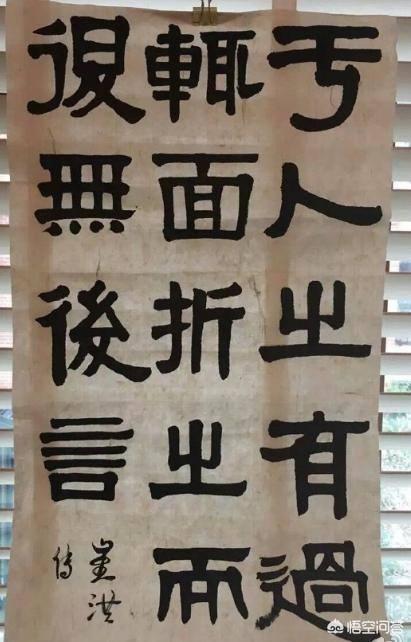 于人之有過
輒面折之而
退無後言
崔洪
傳
悟空问答